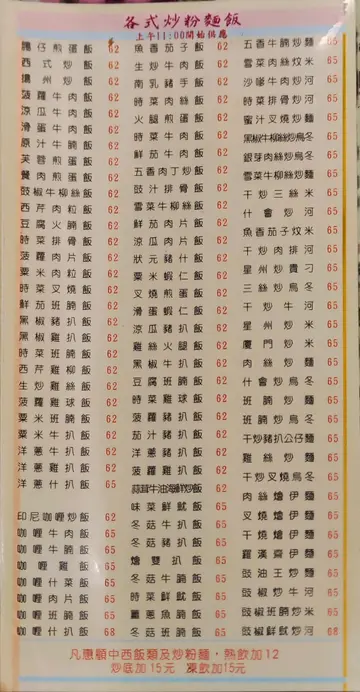 各式炒粉麵飯
上午11:00開始供應
腸仔煎蛋飯 62
西式炒飯 62
揚州炒飯 62
菠蘿牛肉飯 62
涼瓜牛肉飯 62
滑蛋牛肉飯 62
原汁牛腩飯 62
芙蓉煎蛋飯 62
餐肉煎蛋飯 62
豉椒牛柳絲飯 62
西芹肉粒飯 62
豆腐火腩飯 62
時菜排骨飯 62
菠蘿肉片飯 62
粟米肉粒飯 62
時菜叉燒飯 62
鮮茄班腩飯 62
黑椒豬扒飯 62
黑椒雞扒飯 62
時菜班腩飯 62
西芹雞柳飯 62
生炒雞絲飯 62
菠蘿雞球飯 62
粟米班腩飯 62
粟米牛扒飯 62
洋蔥牛扒飯 62
洋蔥雞扒飯 62
洋蔥什扒飯 65
印尼咖喱炒飯 62
咖喱牛肉飯 65
咖喱牛腩飯 65
咖喱雞飯 65
咖喱什菜飯 65
咖喱肉片飯 65
咖喱豬扒飯 65
咖喱牛扒飯 65
咖喱什扒飯 68
魚香茄子飯 62
生炒牛肉飯 62
南乳豬手飯 62
時菜肉絲飯 62
火腿煎蛋飯 62
時菜牛肉飯 62
鮮茄牛肉飯 62
五香肉丁炒飯 62
豉汁排骨飯 62
雪菜牛柳絲飯 62
鮮茄肉片飯 62
涼瓜肉片飯 62
狀元豬什飯 62
粟米蝦仁飯 62
叉燒煎蛋飯 62
滑蛋蝦仁飯 62
涼瓜豬扒飯 62
雞絲火腿飯 62
黑椒牛扒飯 62
豆腐班腩飯 62
時菜雞球飯 62
菠蘿豬扒飯 62
茄汁豬扒飯 62
洋蔥豬扒飯 62
菠蘿雞扒飯 62
蒜茸牛油海鮮炒飯 62
味菜鮮魷飯 65
冬菇牛扒飯 65
冬菇豬扒飯 65
燴雙扒飯 65
冬菇牛腩飯 65
時菜鮮魷飯 65
薑蔥魚腩飯 65
冬菇班腩飯 65
五香牛腩炒麵 65
雪菜肉絲炆米 65
沙嗲牛肉炒河 65
時菜排骨炒河 65
蜜汁叉燒炒麵 65
黑椒牛柳絲炒烏冬 65
銀芽肉絲炒烏冬 65
雪菜牛柳絲炒麵 65
干炒三絲米 65
什會炒河 65
魚香茄子炆米 65
干炒肉排河 65
星州炒貴刁 65
三絲炒烏冬 65
干炒牛河 65
星州炒米 65
廈門炒米 65
肉絲炒麵 65
什會炒烏冬 65
班腩炒麵 65
班腩炒烏冬 65
干炒豬扒公仔麵 65
雞絲炒麵 65
干炒叉燒烏冬 65
肉絲燴伊麵 65
叉燒燴伊麵 65
干燒燴伊麵 65
羅漢齋伊麵 65
豉油王炒麵 65
豉椒炒牛河 65
豉椒班腩炒河 65
豉椒鮮魷炒河 68
凡惠顧中西飯類及炒粉麵，熱飲加12
炒底加15元 凍飲加15元